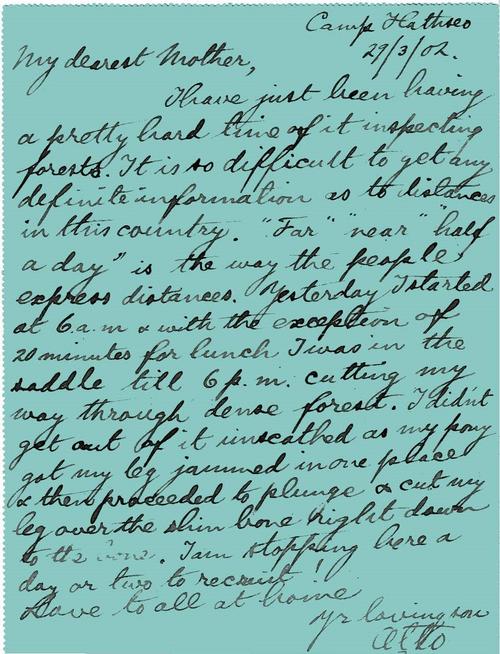 Camp Hathseo
29/3/02.
My dearest Mother,
I have just been having
a pretty hard time of it inspecting
forests. It is so difficult to get any
definite information as to distances
in this country. "Far" "near" "half
a day" is the way the people
express distances. Yesterday I started
at 6 a.m & with the exception of
20 minutes for lunch I was in the
saddle till 6 p.m. cutting my
way through dense forest. I didn't
get out of it unscathed as my pony
got my leg jammed in one place
& then proceeded to plunge & cut my
leg over the shin bone right down
to the bone. I am stopping here a
day or two to recruit!
Love to all at home
Yr loving son
Otto